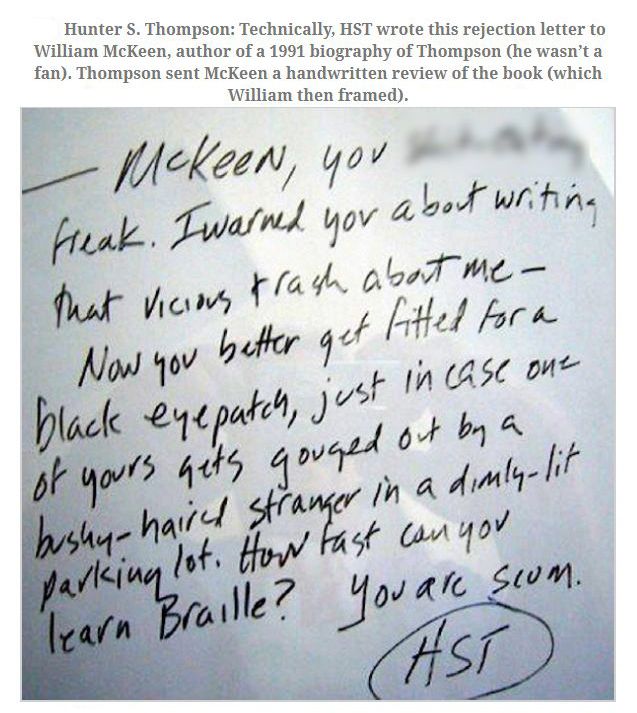 Hunter S. Thompson: Technically, HST wrote this rejection letter to
William McKeen, author of a 1991 biography of Thompson (he wasn't a
fan). Thompson sent McKeen a handwritten review of the book (which
William then framed).
— McKeen, you
freak. I warned you about writing
that vicious trash about me —
Now you better get fitted for a
black eyepatch, just in case one
of yours gets gouged out by a
bushy-haired stranger in a dimly-lit
parking lot. How fast can you
learn Braille? You are scum.
HST